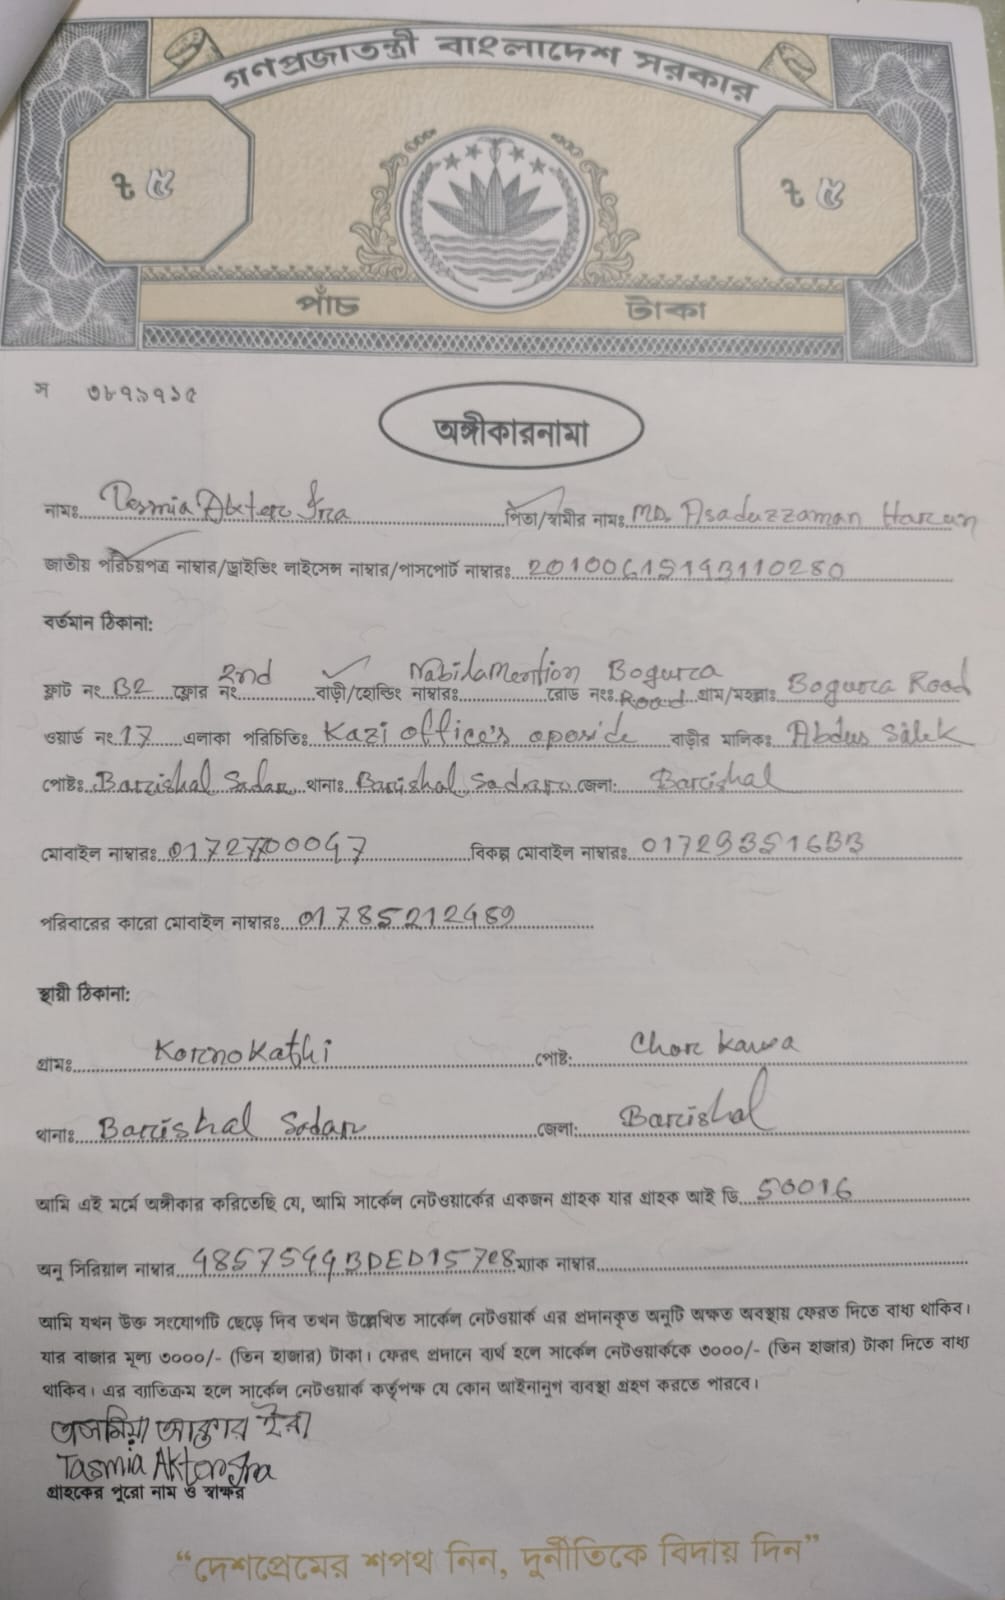 গণপ্রজাতন্ত্রী বাংলাদেশ সরকার
৳ ৫ ৳ ৫
পাঁচ টাকা
স ৩৮৭১৭১৫
অঙ্গীকারনামা
নামঃ Tasmia Akter Ira পিতা/স্বামীর নামঃ MD. Asaduzzaman Harun
জাতীয় পরিচয়পত্র নাম্বার/ড্রাইভিং লাইসেন্স নাম্বার/পাসপোর্ট নাম্বারঃ 20100615143110280
বর্তমান ঠিকানা:
ফ্লাট নং B2 ফ্লোর নং 2nd বাড়ী/হোল্ডিং নাম্বারঃ Nabila Mention রোড নংঃ Bogura Road গ্রাম/মহল্লাঃ Bogura Road
ওয়ার্ড নং 17 এলাকা পরিচিতিঃ Kazi office's oposide বাড়ীর মালিকঃ Abdus Salek
পোষ্টঃ Barishal Sadar থানাঃ Barishal Sadar জেলা: Barishal
মোবাইল নাম্বারঃ বিকল্প মোবাইল নাম্বারঃ 01729351633
পরিবারের কারো মোবাইল নাম্বারঃ 01785212489
স্থায়ী ঠিকানা:
গ্রামঃ Kornokathi পোষ্ট: Chor Kawa
থানাঃ Barishal Sadar জেলা: Barishal
আমি এই মর্মে অঙ্গীকার করিতেছি যে, আমি সার্কেল নেটওয়ার্কের একজন গ্রাহক যার গ্রাহক আই ডি 50016
অনু সিরিয়াল নাম্বার 48575443DED157e8 ম্যাক নাম্বার
আমি যখন উক্ত সংযোগটি ছেড়ে দিব তখন উল্লেখিত সার্কেল নেটওয়ার্ক এর প্রদানকৃত অনুটি অক্ষত অবস্থায় ফেরত দিতে বাধ্য থাকিব।
যার বাজার মূল্য ৩০০০/- (তিন হাজার) টাকা। ফেরৎ প্রদানে ব্যর্থ হলে সার্কেল নেটওয়ার্ককে ৩০০০/- (তিন হাজার) টাকা দিতে বাধ্য
থাকিব। এর ব্যাতিক্রম হলে সার্কেল নেটওয়ার্ক কর্তৃপক্ষ যে কোন আইনানুগ ব্যবস্থা গ্রহণ করতে পারবে।
তাসমিয়া আক্তার ইরা
Tasmia Akter Ira
গ্রাহকের পুরো নাম ও স্বাক্ষর
“দেশপ্রেমের শপথ নিন, দুর্নীতিকে বিদায় দিন”